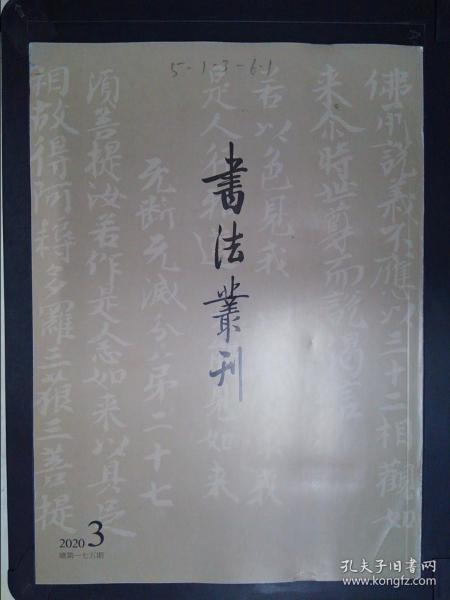 5-1-3-6.1
書法叢刊
佛所說義不應以三十二相觀如
来尒時世尊而說偈言
若以色見我
是人行邪道
見如来
无斷无滅分第二十七
須菩提汝若作是念如来以具足
相故得阿耨多羅三藐三菩提
2020 3
總第一七五期
孔夫子旧书网
www.kongfz.com